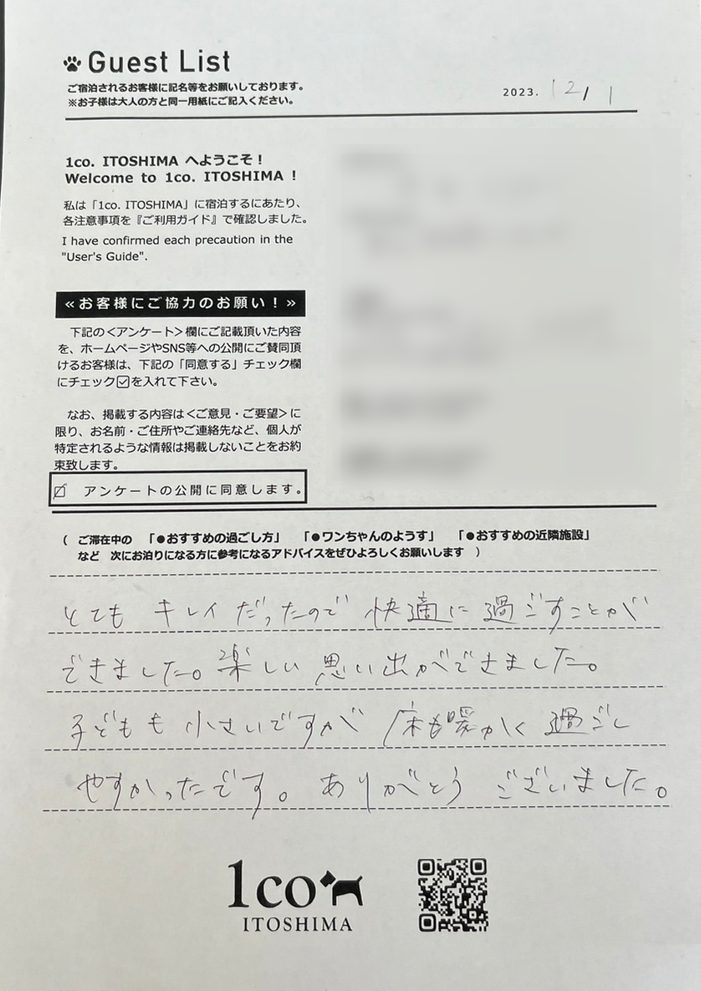 Guest List
ご宿泊されるお客様に記名等をお願いしております。
※お子様は大人の方と同一用紙にご記入ください。
2023. 12/1
1co. ITOSHIMA へようこそ！
Welcome to 1co. ITOSHIMA !
私は「1co. ITOSHIMA」に宿泊するにあたり、
各注意事項を『ご利用ガイド』で確認しました。
I have confirmed each precaution in the
"User's Guide".
≪お客様にご協力のお願い！≫
下記の＜アンケート＞欄にご記載頂いた内容
を、ホームページやSNS等への公開にご賛同頂
けるお客様は、下記の「同意する」チェック欄
にチェック☑を入れて下さい。
なお、掲載する内容は＜ご意見・ご要望＞に
限り、お名前・ご住所やご連絡先など、個人が
特定されるような情報は掲載しないことをお約
束致します。
☑ アンケートの公開に同意します。
（ ご滞在中の 「●おすすめの過ごし方」 「●ワンちゃんのようす」 「●おすすめの近隣施設」
など 次にお泊りになる方に参考になるアドバイスをぜひよろしくお願いします ）
とても キレイ だったので 快適に 過ごすことが
できました。楽しい 思い出ができました。
子どもも 小さいですが 床も暖かく 過ごし
やすかったです。ありがとう ございました。
1co
ITOSHIMA